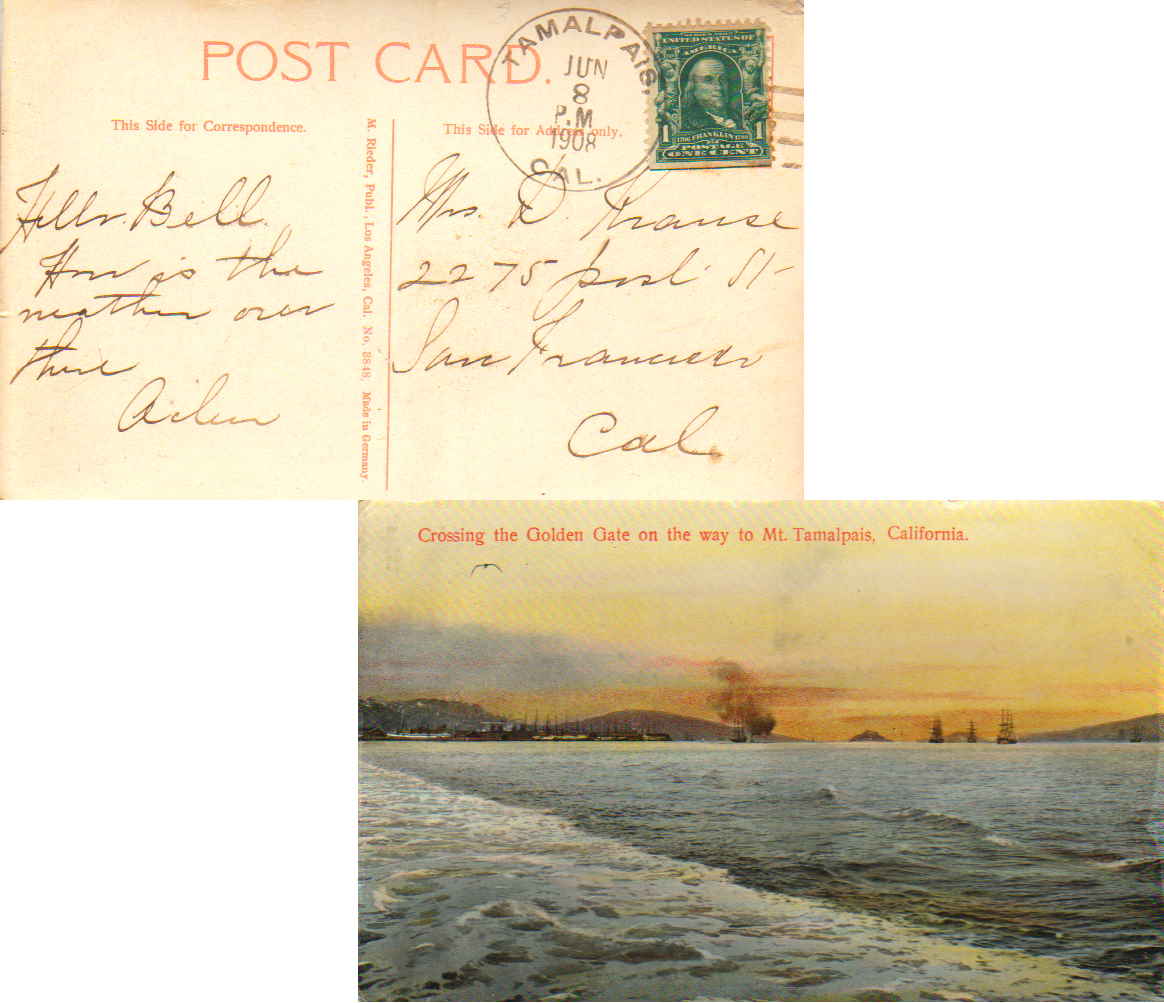 POST CARD.
TAMALPAIS,
JUN
8
P.M
1908
CAL.
UNITED STATES OF
AMERICA
1 1706 FRANKLIN 1790 1
POSTAGE
ONE CENT
This Side for Correspondence.
This Side for Address only.
M. Rieder, Publ., Los Angeles, Cal. No. 3848. Made in Germany.
Hello. Bell.
How is the
weather over
there
Aileen
Mrs. D. Krause
2275 post St
San Francisco
Cal.
Crossing the Golden Gate on the way to Mt. Tamalpais, California.